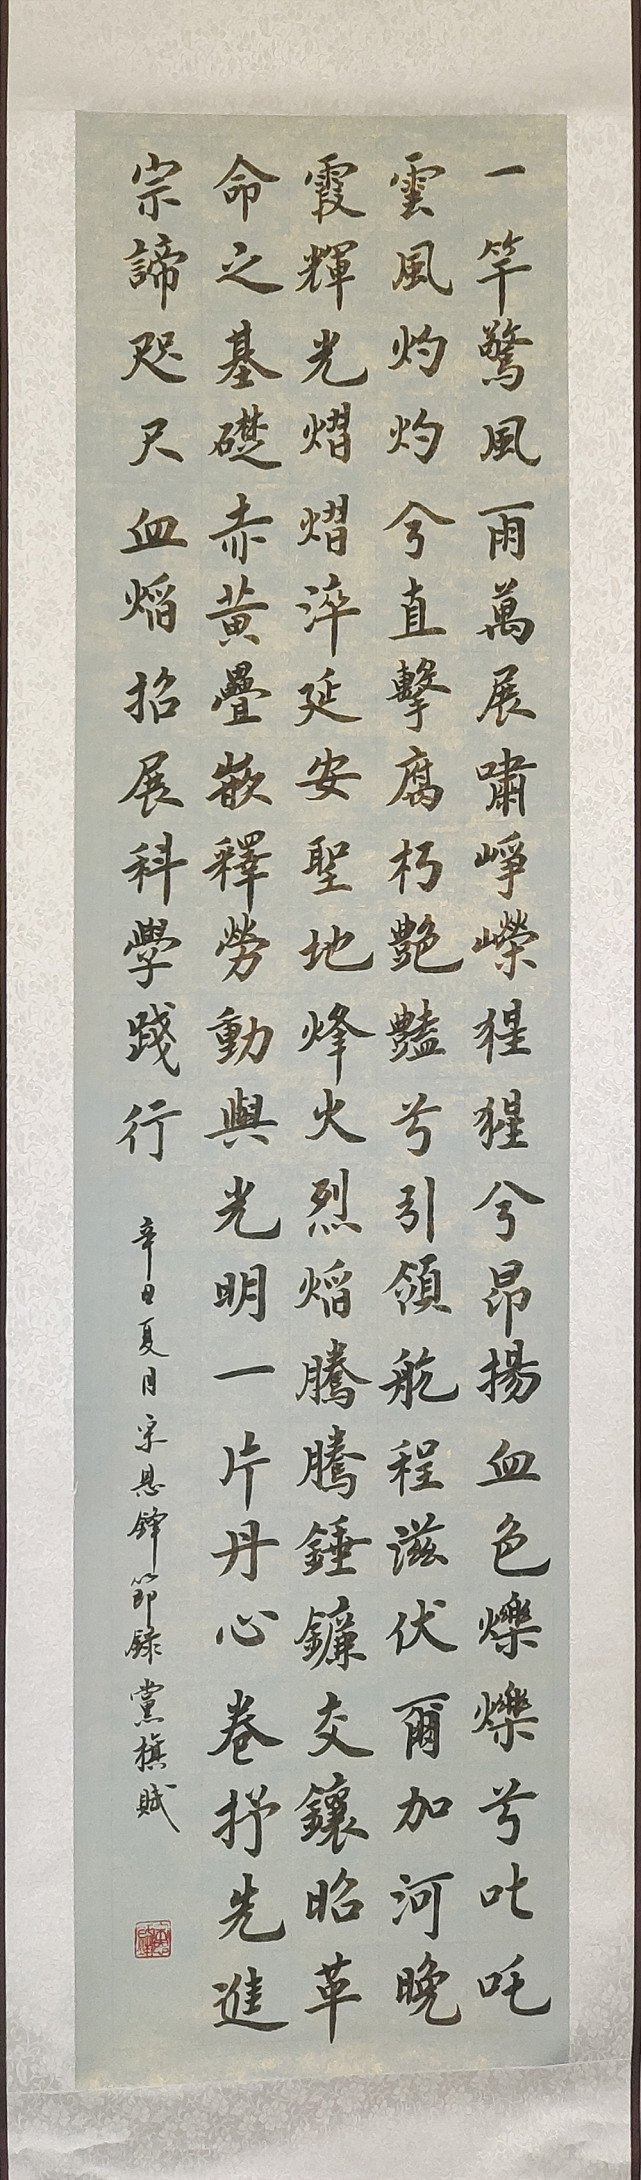 一竿驚風雨萬展嘯崢嶸猩猩兮昂揚血色爍爍兮叱吒
雲風灼灼兮直擊腐朽艷豔兮引領航程滋伏爾加河晚
霞輝光熠熠淬延安聖地烽火烈焰騰騰錘鐮交鑲昭革
命之基礎赤黃疊嵌釋勞動與光明一片丹心卷抒先進
宗諦咫尺血焰招展科學踐行
辛丑夏月宋恩鋒節録黨旗賦